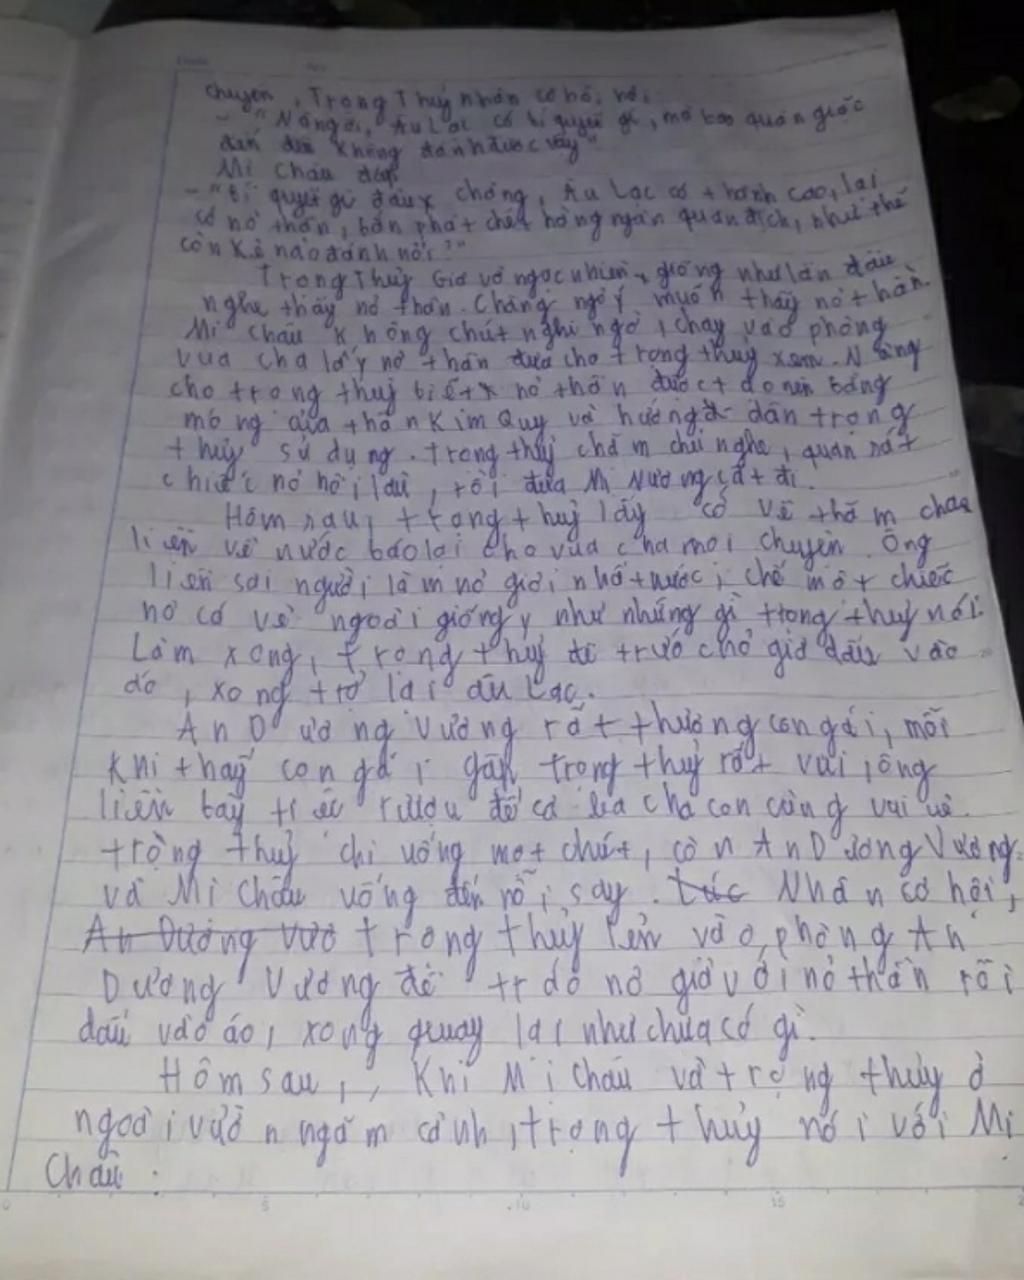 chuyện, Trọng Thuỷ nhân cơ hội hỏi
- "Nàng ơi, Âu Lạc có bí quyết gì, mà bao quân giặc
đến đều không đánh được vậy"
Mị Châu đáp
- "Bí quyết gì đâu chàng, Âu Lạc có thành cao, lại
có nỏ thần, bắn phát chết hàng ngàn quân địch, như thế
còn kẻ nào đánh nổi?"
Trọng Thuỷ giả vờ ngạc nhiên, giống như lần đầu
nghe thấy nỏ thần. Chàng ngỏ ý muốn thấy nỏ thần.
Mị Châu không chút nghi ngờ, chạy vào phòng
vua cha lấy nỏ thần đưa cho trọng thuỷ xem. Nàng
cho trọng thuỷ biết nỏ thần được
móng của thần Kim Quy và hướng dẫn trọng
thuỷ sử dụng. trọng thuỷ chăm chú nghe, quan sát
chiếc nỏ hồi lâu, rồi đưa Mị Nương cất đi.
Hôm sau, trọng thuỷ lấy cớ về thăm cha
liền về nước báo lại cho vua cha mọi chuyện. Ông
liền sai người làm nỏ giỏi nhất nước, chế một chiếc
nỏ có vẻ ngoài giống y như những gì trọng thuỷ nói.
Làm xong, trọng thuỷ giấu vào
áo, xong trở lại âu Lạc.
An Dương Vương rất thương con gái, mỗi
khi thấy con gái gần trọng thuỷ rất vui, ông
liền bày tiệc rượu để cả ba cha con cùng vui vẻ.
trọng thuỷ chỉ uống một chút, còn An Dương Vương
và Mị Châu uống đến rồi say. tức Nhân cơ hội,
An Dương Vươ trọng thuỷ lẻn vào phòng An
Dương Vương để tráo nỏ giả với nỏ thần rồi
dấu vào áo, xong quay lại như chưa có gì.
Hôm sau, , Khi Mị Châu và trọng thủy ở
ngoài vườn ngắm cảnh, trọng thủy nói với Mị
Châu :